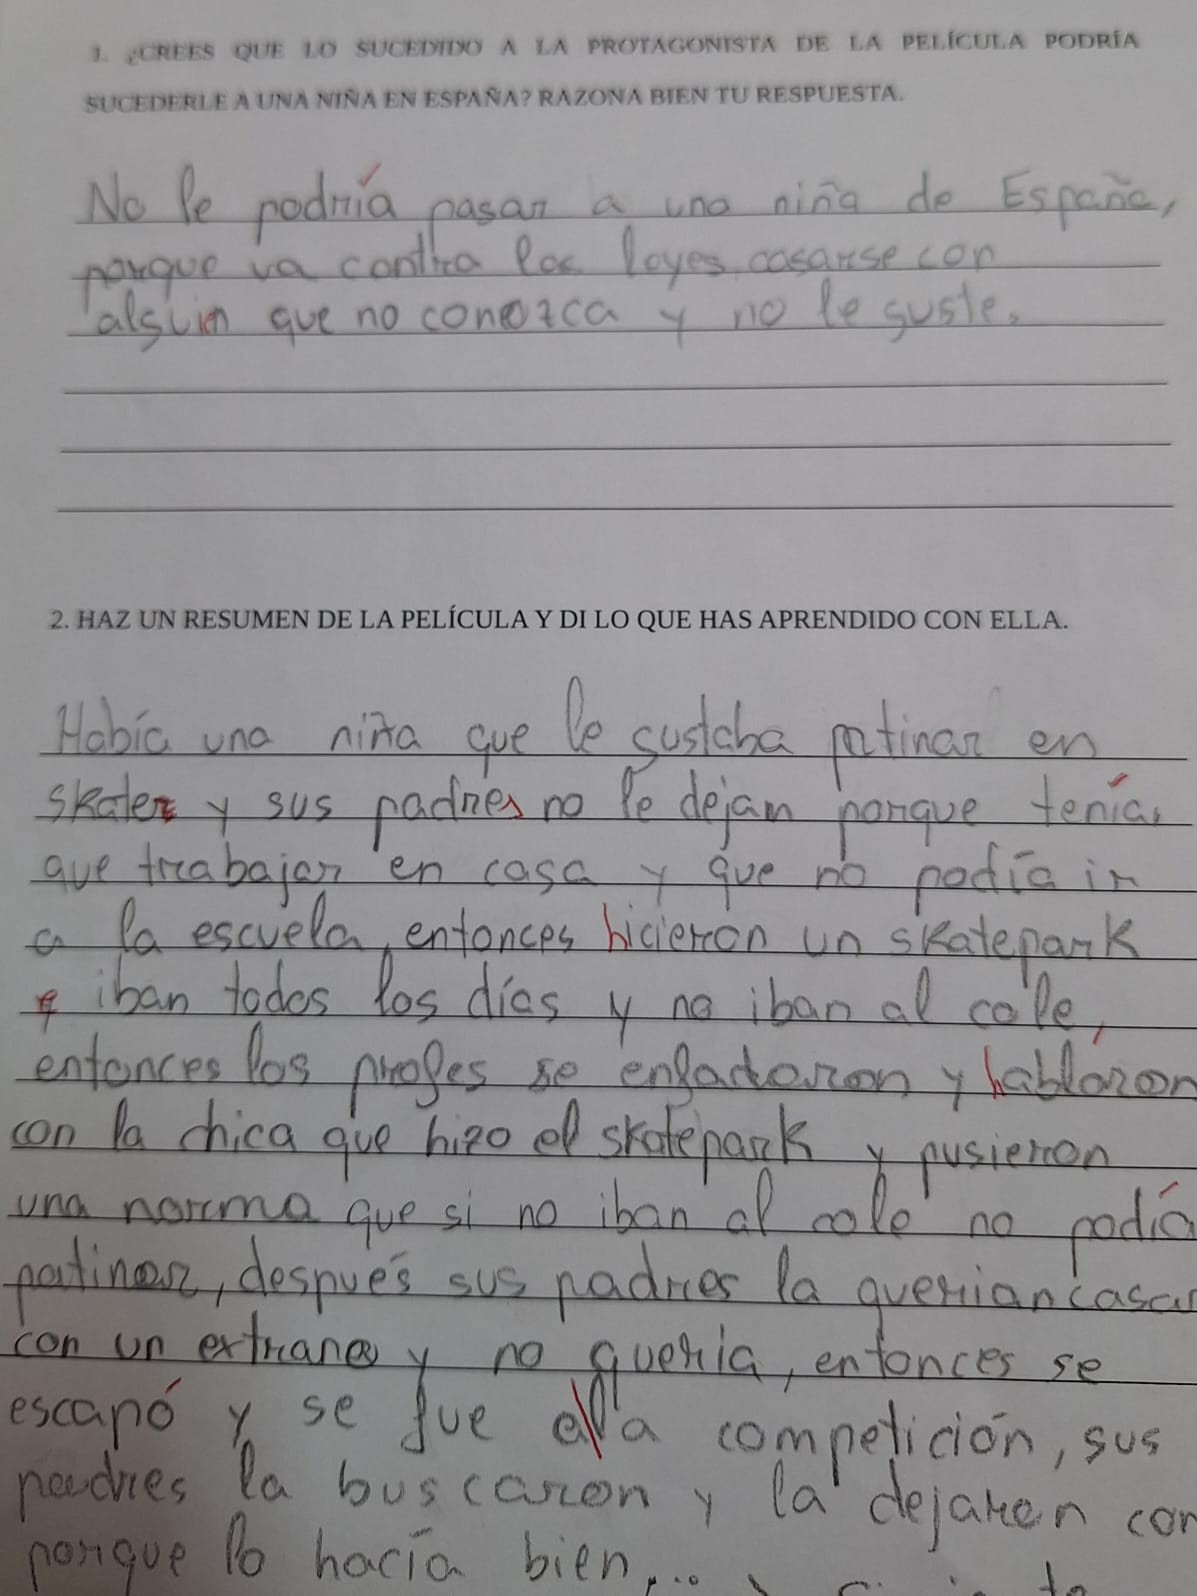 1. ¿CREES QUE LO SUCEDIDO A LA PROTAGONISTA DE LA PELÍCULA PODRÍA
SUCEDERLE A UNA NIÑA EN ESPAÑA? RAZONA BIEN TU RESPUESTA.
No le podría pasar a una niña de España,
porque va contra las leyes casarse con
alguien que no conozca y no le guste.
2. HAZ UN RESUMEN DE LA PELÍCULA Y DI LO QUE HAS APRENDIDO CON ELLA.
Había una niña que le gustaba patinar en
skate y sus padres no le dejam porque tenía
que trabajar en casa y que no podía ir
a la escuela, entonces hicieron un skatepark
e iban todos los días y no iban al cole,
entonces los profes se enfadaron y hablaron
con la chica que hizo el skatepark y pusieron
una norma que si no iban al cole no podía
patinar, después sus padres la querian casar
con un extraño y no quería, entonces se
escapó y se fue a la competición, sus
padres la buscaron y la dejaron con
porque lo hacía bien...